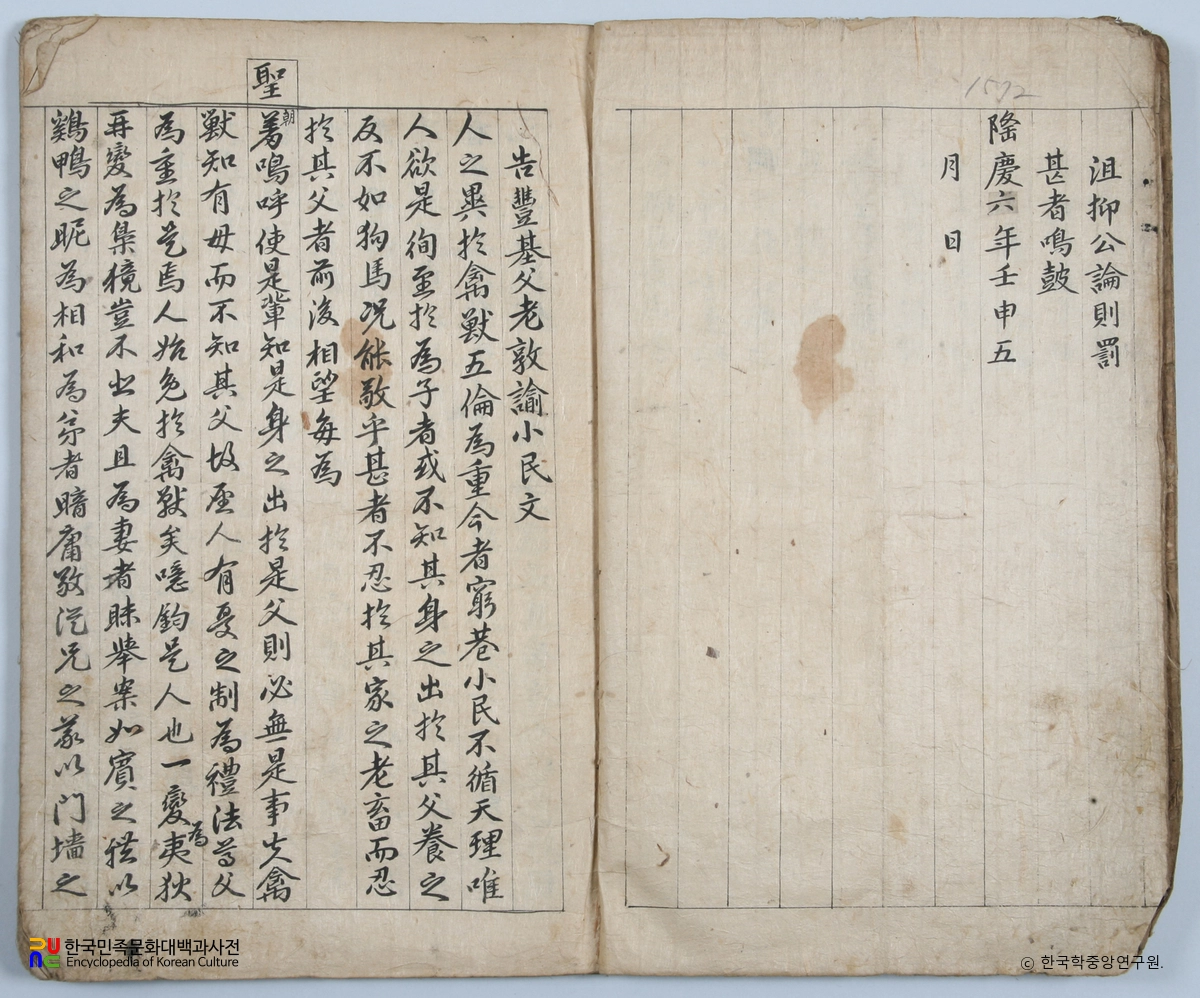 1572
沮抑公論則罰
甚者鳴鼓
隆慶六年壬申五
月 日
告豐基父老敦諭小民文
人之異於禽獸五倫為重今者窮巷小民不循天理唯
人欲是徇至於為子者或不知其身之出於其父養之
反不如狗馬况能敬乎甚者不忍於其家之老畜而忍
於其父者前後相望每為
聖
朝
羞嗚呼使是輩知是身之出於是父則必無是事矣禽
獸知有母而不知其父故聖人有憂之制為禮法尊父
為重於是焉人始免於禽獸矣噫鈞是人也一變為夷狄
再變為梟獍豈不悲夫且為妻者昧舉案如賓之禮以
鷄鴨之昵為相和為弟者暗庸敬從兄之義以門墻之
한국민족문화대백과사전
Encyclopedia of Korean Culture
© 한국학중앙연구원.